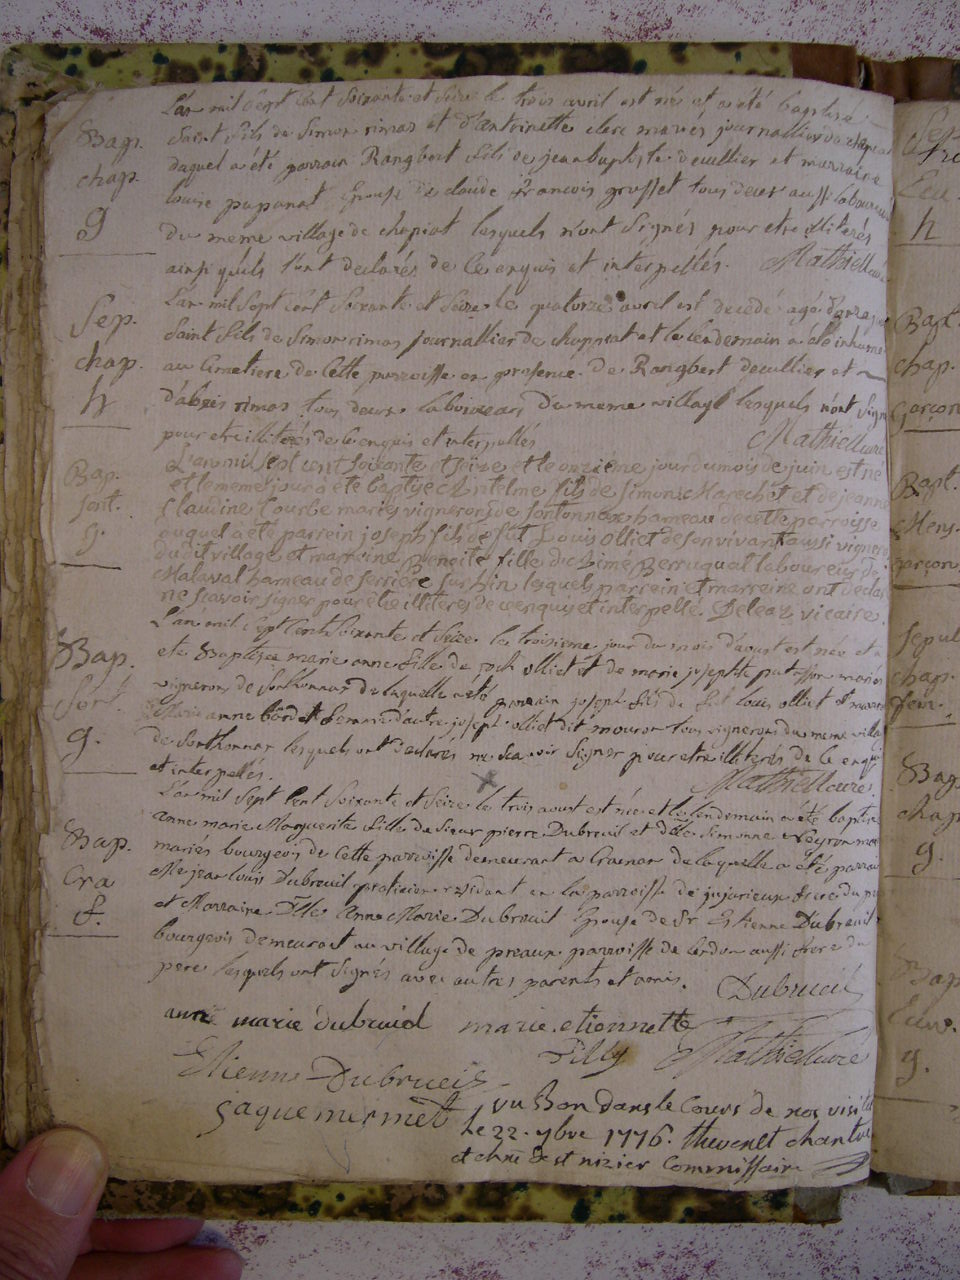 L'an mil sept cent soixante et seize le trois avril est né et a été baptisé
Bap. chap. g
Saint fils de Simon rimas et d'antoinette clerc mariés journalliers
duquel a été parrain Rangbert fils de jean baptiste decullier et marraine
louise papanat Epouse de claude françois gruffet tous deux aussi laboureurs
du meme village de chapiat lesquels n'ont Signés pour etre illiterés
ainsi qu'ils l'ont declarés de ce enquis et interpellés. Mathieu curé
L'an mil sept cent soixante et seize le quatorze avril est decedé agé d'onze jours
Sep. chap. h
Saint fils de Simon rimas journallier de chapiat et le lendemain a été inhumé
au cimetiere de cette parroisse en presence de Rangbert decullier et
rimas tous deux laboureurs du meme village lesquels n'ont signé
pour etre illiterés de ce enquis et interpellés Mathieu curé
L'an mil sept cent soixante et seize et le onzieme jour du mois de juin est né
Bap. font. g.
et le meme jour a été baptisé Antelme fils de Simon Marechet et de jeanne
Claudine Courbe mariés vignerons de fontonnax hameau de cette parroisse
auquel a été parrein joseph fils de fût Louis olliet de son vivant aussi vigneron
du dit village et marraine Benoite fille d'Anthime Berruquat laboureur de
Malaval hameau de serriere sur hin lesquels parrein et marreine ont declaré
ne sçavoir signer pour être illiterés de ce enquis et interpellé. Deleaz, vicaire.
L'an mil sept cent soixante et seize le troisieme jour du mois d'aout est née et a
Bap. font. g.
eté Baptisée marie anne fille de roch olliet et de marie josephte putesson mariés
vignerons de fonthonnax de laquelle a été parrain joseph fils de feu louis olliet et marraine
Marie anne bordet femme d'autre joseph olliet dit mouron tous vignerons du meme village
de fonthonnax lesquels ont declarés ne scavoir signer pour etre illiterés de ce enquis
et interpellés. Mathieu curé
L'an mil sept cent soixante et seize le trois aoust est née et le lendemain a été baptisée
Bap. Cra f.
anne marie Marguerite fille du Sieur pierre Dubreuil et dlle Simonne Neyron mariés
mariés bourgeois de cette parroisse demeurant a Cranar de laquelle a été parrain
Me jean louis Dubreuil praticien residant en la parroisse de jujurieux frere du pere
et Marraine Dlle Anne Marie Dubreuil Epouse de Sr Etienne Dubreuil
bourgeois demeurant au village de preaux parroisse de cerdon aussi frere du
pere lesquels ont signés avec autres parents et amis. Dubreuil
anne marie dubruiel marie etiennette
Pilly Mathieu curé
Etienne Dubrueil
jaque mermet
Vu Bon dans le Cours de nos visites
Le 22. 9bre 1776. thevenet chantre
et chne de st nizier Commissaire
h
Bapt.
chap.
Garçon
Bapt.
Mery.
garçon
sepul
chap.
fem.
Bap.
chap.
g.
Bap.
g.